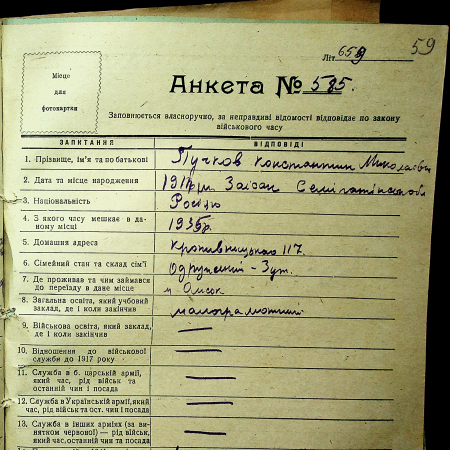 59
Літ. 659
Місце
для
фотокартки
Анкета № 585.
Заповнюється власноручно, за неправдиві відомості відповідає по закону
військового часу
ЗАПИТАННЯ ВІДПОВІДІ
1. Прізвище, ім'я та по батькові Пучков Константин Миколаевич
2. Дата та місце народження Зайсан
3. Національність
4. З якого часу мешкає в да-
ному місці 1935р.
5. Домашня адреса 117.
6. Сімейний стан та склад сім'ї Одружений - 3 ут.
7. Де проживав та чим займався
до переїзду в дане місце м Омськ
8. Загальна освіта, який учбовий
заклад, де і коли закінчив малограмотний
9. Військова освіта, який заклад,
де і коли закінчив —
10. Відношення до військової
служби до 1917 року —
11. Служба в б. царській армії,
який час, рід військ та
останній чин і посада —
12. Служба в Українській армії, який
час, рід військ та ост. чин і посада —
13. Служба в інших арміях (за ви-
нятком червоної) — рід військ,
який час, останній чин та посада —